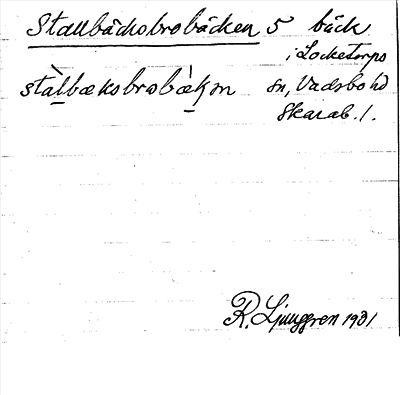 Stallbäcksbrobäcken 5 bäck
i Locketorps
stàlbæksbrobæ̀kən sn, Vadsbo hd
Skarab. l.
R. Ljunggren 1931